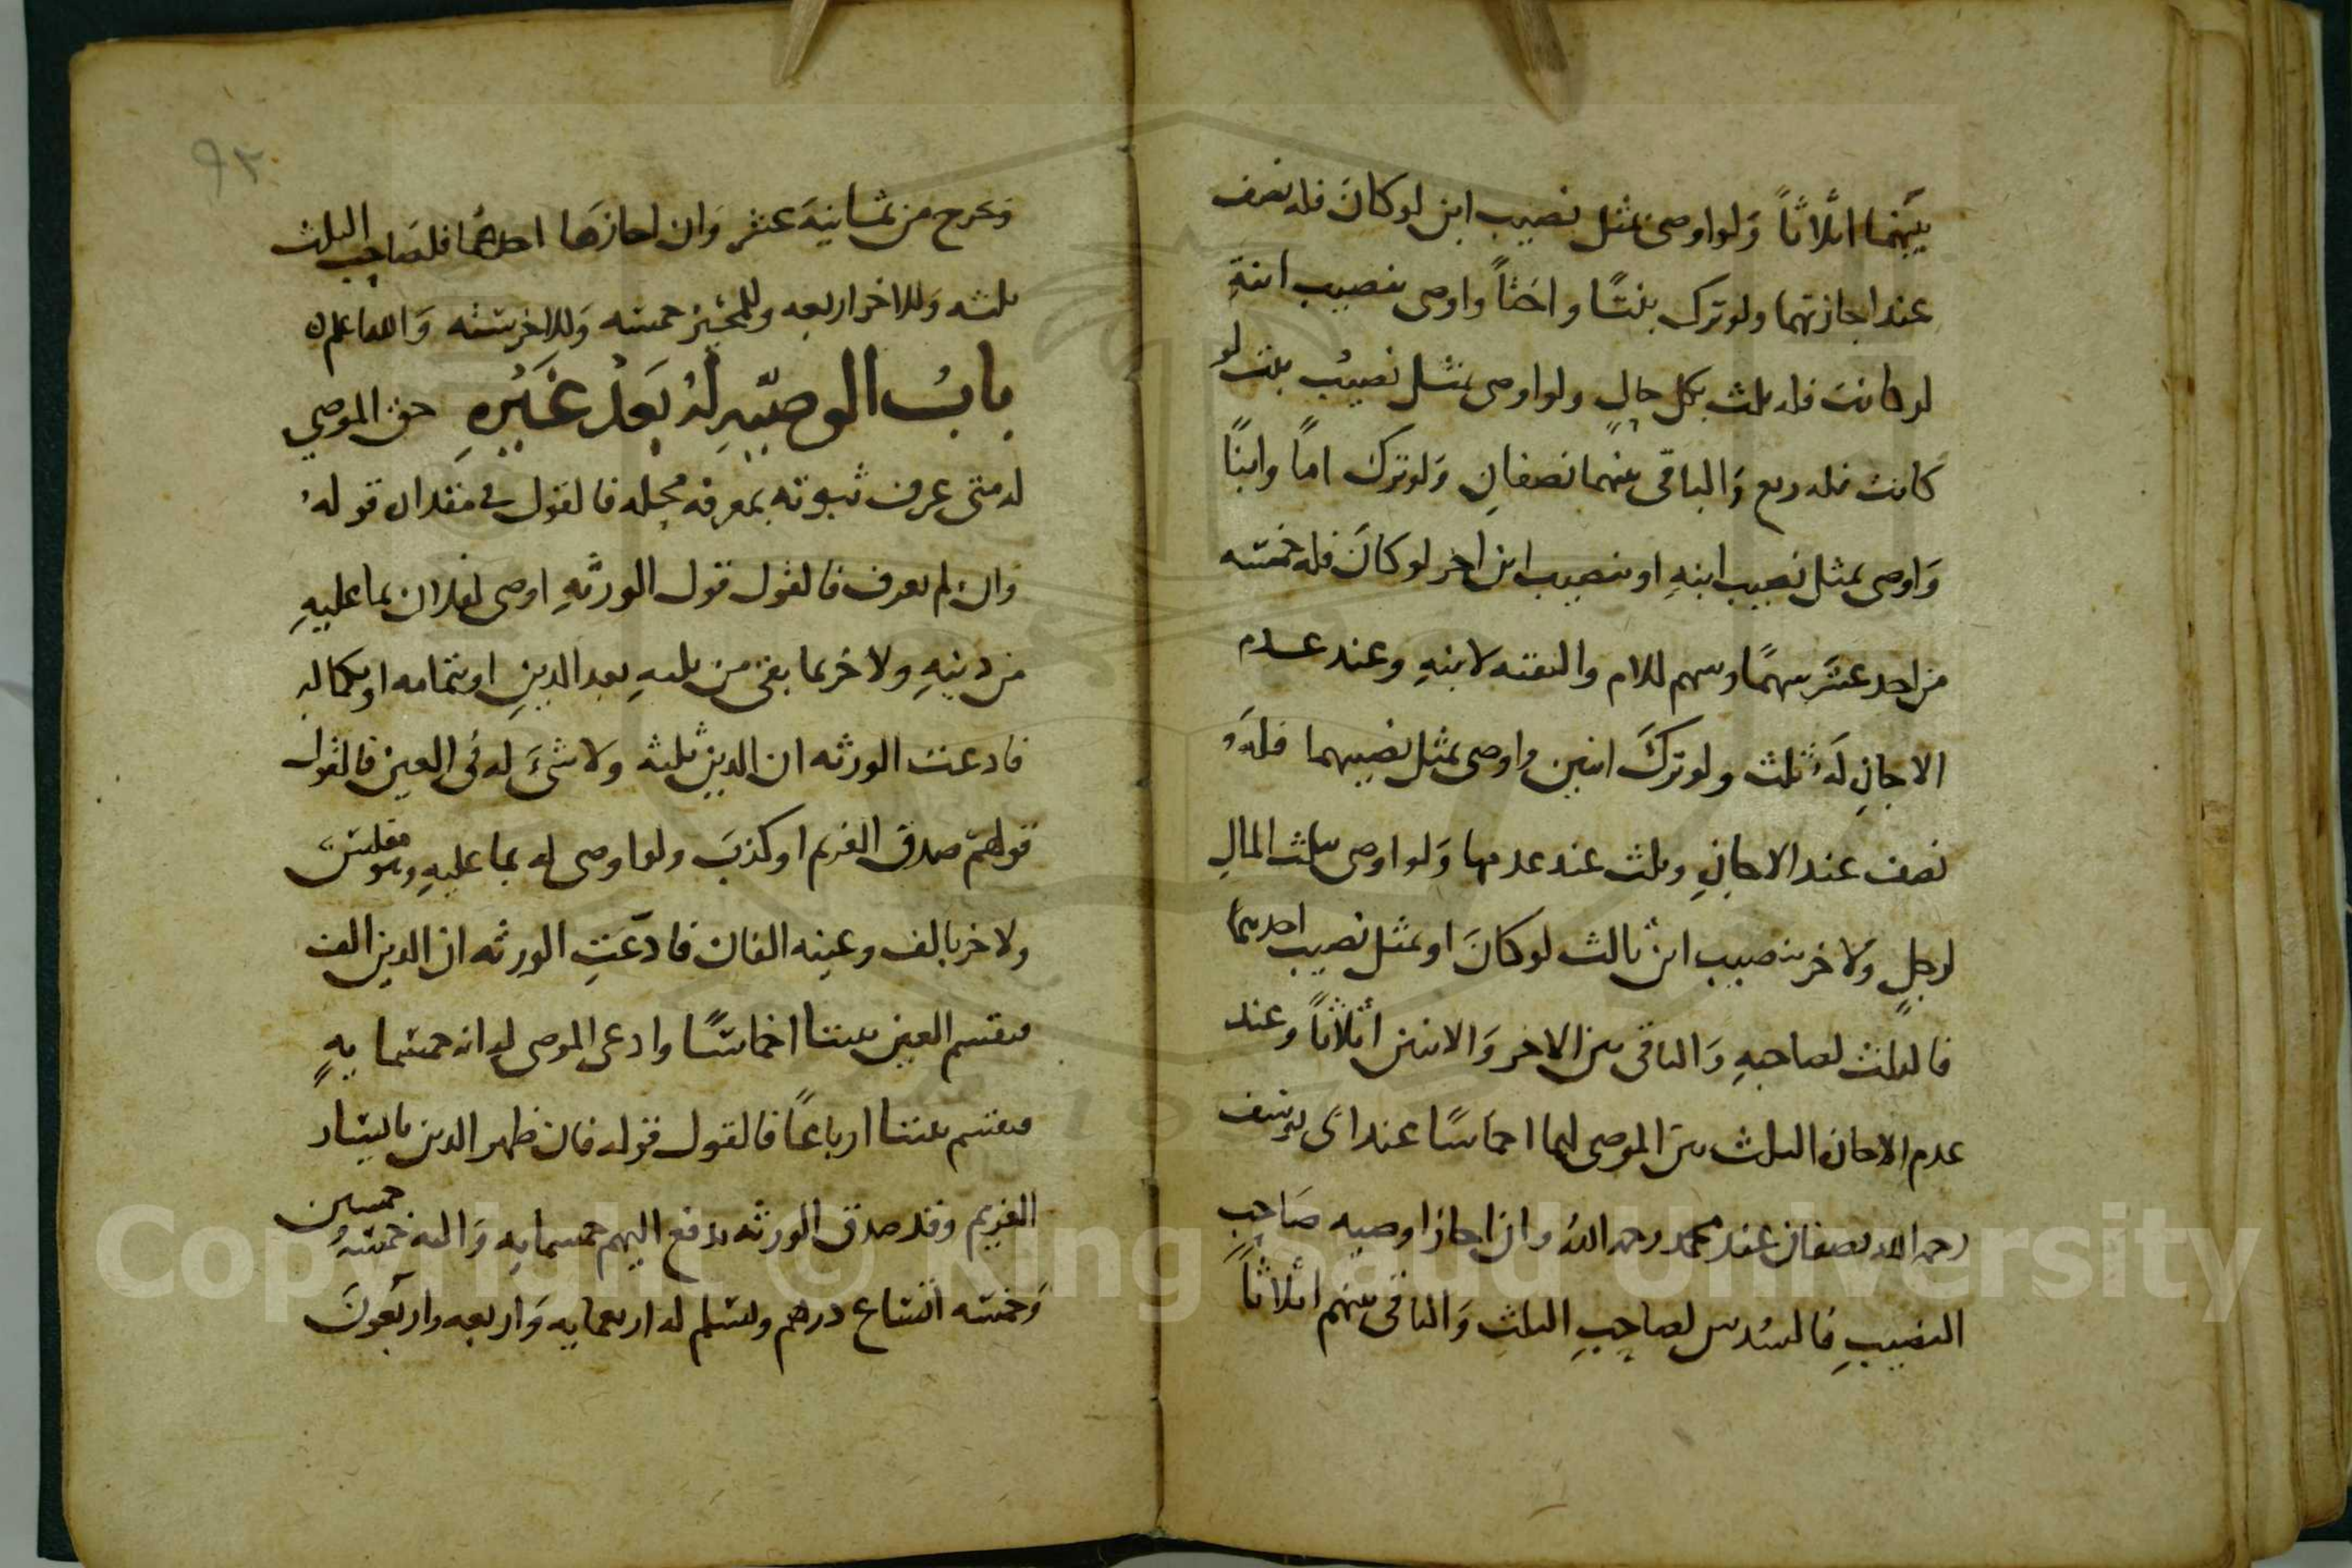 بينهما اثلاثاً وَلو اوصى بمثل نصيب ابن لو كانَ فله نصف
عند اجازتهما ولو ترك بنتًا واختاً واوصى بنصيب ابنةٍ
لو كانت فله ثلث بكل حالٍ ولو اوصى بمثل نصيب بنت لو
كانت فله ربع وَالباقي بينهما نصفانِ وَلو ترك اماً وابنًا
وَاوصى بمثل نصيب ابنهِ او بنصيب ابن اخر لو كانَ فله خمسه
من احد عشَر سهمًا وسهم للام والبقيه لابنهِ وعند عدم
الاجازِ لَهُ ثلث ولو تركَ ابنين واوصى بمثل نصيبهما فلهُ
نصف عند الاجازِ وثلث عند عدمها وَلو اوصى بثلث المالِ
لرجلٍ وَلاخر بنصيب ابن ثالث لو كانَ او بمثل نصيب احدهما
فالثلث لصاحبهِ وَالباقي بين الاخر وَالابنين اثلاثاً وعند
عدم الاجازه الثلث بين الموصى لهما اخماسًا عند ابى يوسف
رحمه الله نصفان عند محمد رحمه اللهُ وان اجازا وصيه صَاحِب
النصيبِ فالسُدس لصاحِبِ الثلثِ وَالباقي بينهم اثلاثاً
٩٣
وَتخرج من ثمانيةَ عشر وَان اجازهَا احدهما فلصَاحِب الثلث
ثلثه وَللاخر اربعه وللمجيز خمسه وَللاخر سته وَالله اعلم
بابُ الوصيّهِ لهُ بَعدْ غَيْرِهِ حق الموصي
له متى عرف ثبوته بمعرفه محله فالقول في مقداره قوله
وان لم يعرف فالقول قول الورثهِ اوصى لفلان بما عليهِ
من دينهِ ولاخر بما بقى من ثلثهِ بعد الدينِ او بتمامه او بكماله
فادعت الورثه ان الدين ثلثه ولا شئَ له في العين فالقول
قولهم صدق الغريم او كذبَ ولو اوصى له بما عليهِ وهو مفلس
ولاخر بالف وعينه الفان فادّعَتِ الورثه ان الدين الف
فيقسم العين بيننا اخماسًا وادعى الموصى له انه خمسمايهٍ
فيقسم بيننا ارباعًا فالقول قوله فان ظهر الدين باليسار
الغريم وقد صدق الورثه يدفع اليهم خمسمايهِ وَاليه خمسهُ خمسين
وَخمسه اتساع درهم ويسلم له اربعمايه وَاربعه واربعونَ